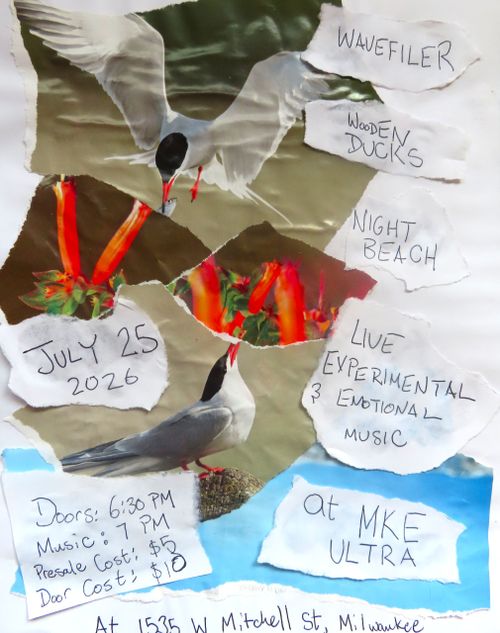 WAVEFILER
WOODEN
DUCKS
NIGHT
BEACH
JULY 25
2026
LIVE
EXPERIMENTAL
& EMOTIONAL
MUSIC
Doors: 6:30 PM
Music: 7 PM
Presale Cost: $5
Door Cost: $10
at MKE
ULTRA
At 1535 W Mitchell St, Milwaukee